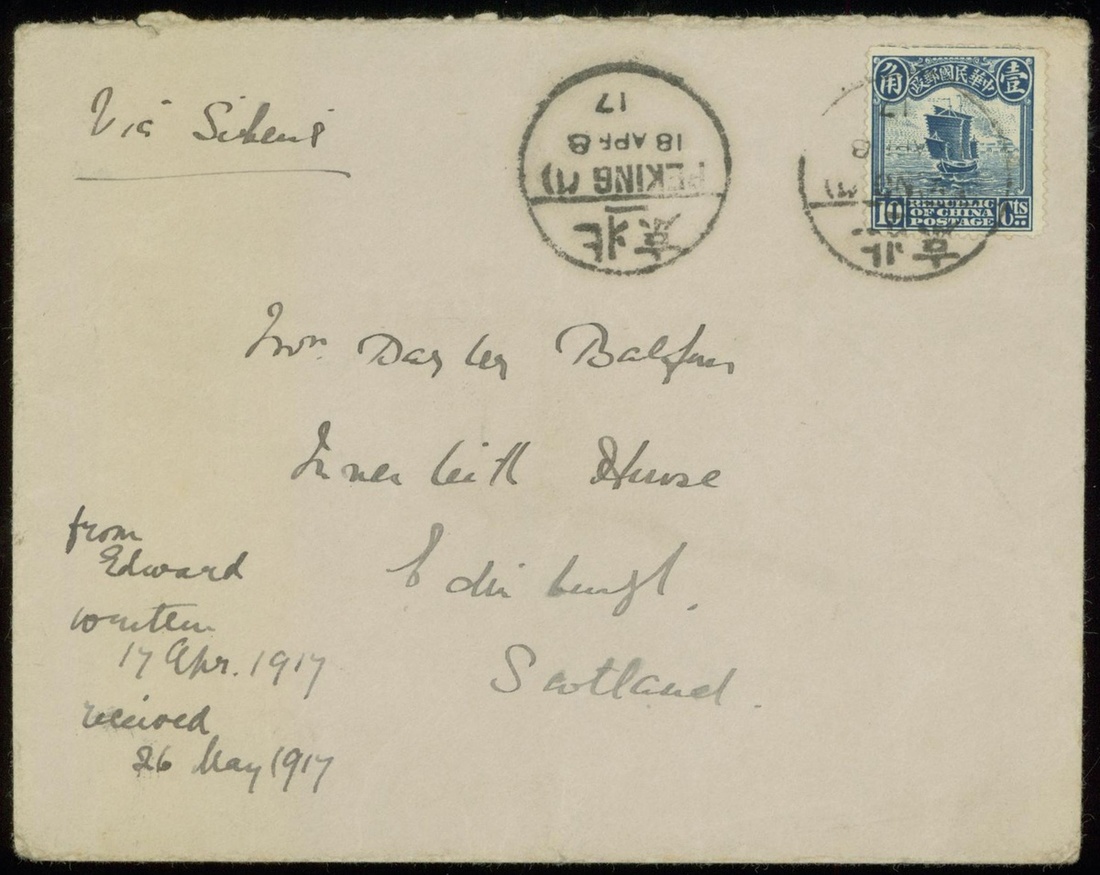 Via Siberia
北京
PEKING (1)
18 APR 8
17
壹 中華民國郵政 角
10 REPUBLIC cts
OF CHINA
POSTAGE
北京
Mrs. Bayley Balfour
Inverleith House
Edinburgh.
Scotland.
from
Edward
written
17 Apr. 1917
received
26 May 1917